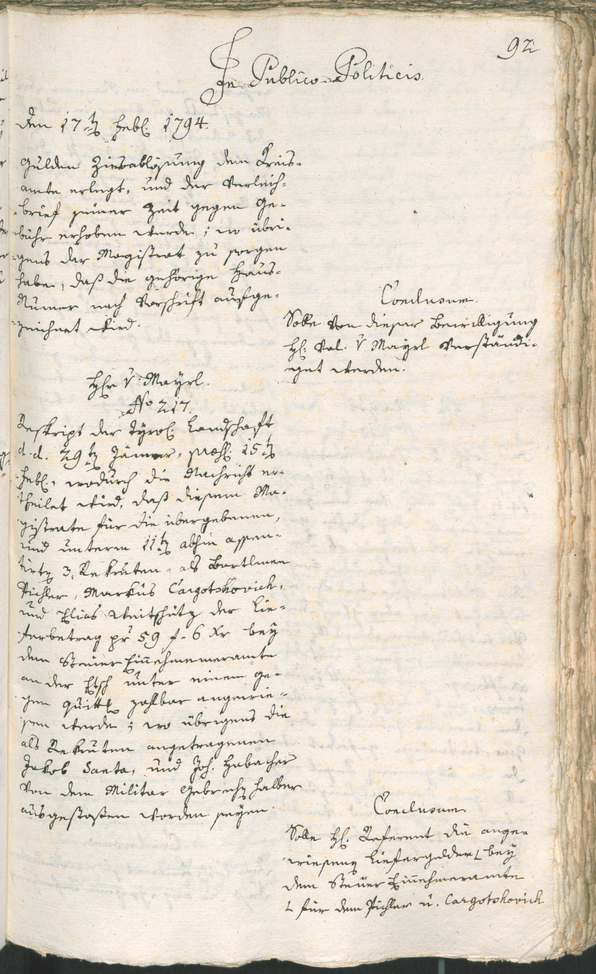 92
In Publico-Politicis.
den 17ten Febr. 1794.
gulden Zinsablößung dem Kreis-
amte erlegt, und der Verleich-
brief seiner Zeit gegen Ge-
bühr erhoben werde; wo übri-
gens der Magistrat zu sorgen
habe, daß die gehörige Haus-
Numer nach Vorschrift aufge-
zeichnet wird.
Conclusum.
Solle von dieser Bewilligung
H. Val. v Mayrl verständi-
get werden.
Hr v Mayrl.
No 217.
Reskript der Tyrol. Landschaft
d. d. 29ten Jänner, 15ten
Febr. wodurch die Nachricht er-
theilet wird, daß diesem Ma-
gistrate für die übergebenen,
und unterm 11ten abhin assen-
tirten 3. Rekruten, als Bartlmee
Pichler, Markus Cargotshovich,
und Elias Weitschütz der Lie-
ferbetrag pr 59 f. 6 Xr bey
dem Steuer Einnehmeramte
an der Etsch unter einem ge-
gen Quitt. zahlbar angewie-
sen werde; wo übrigens die
als Rekruten angetragenen
Jakob Santa, und Joh. Habacher
von dem Militar Gebrechen halber
ausgestoßen worden seyen.
Conclusum.
Solle H. Referent die ange-
wiesene Liefergelder bey
dem Steuer Einnehmeramte
für dem Pichler u. Cargotshovich